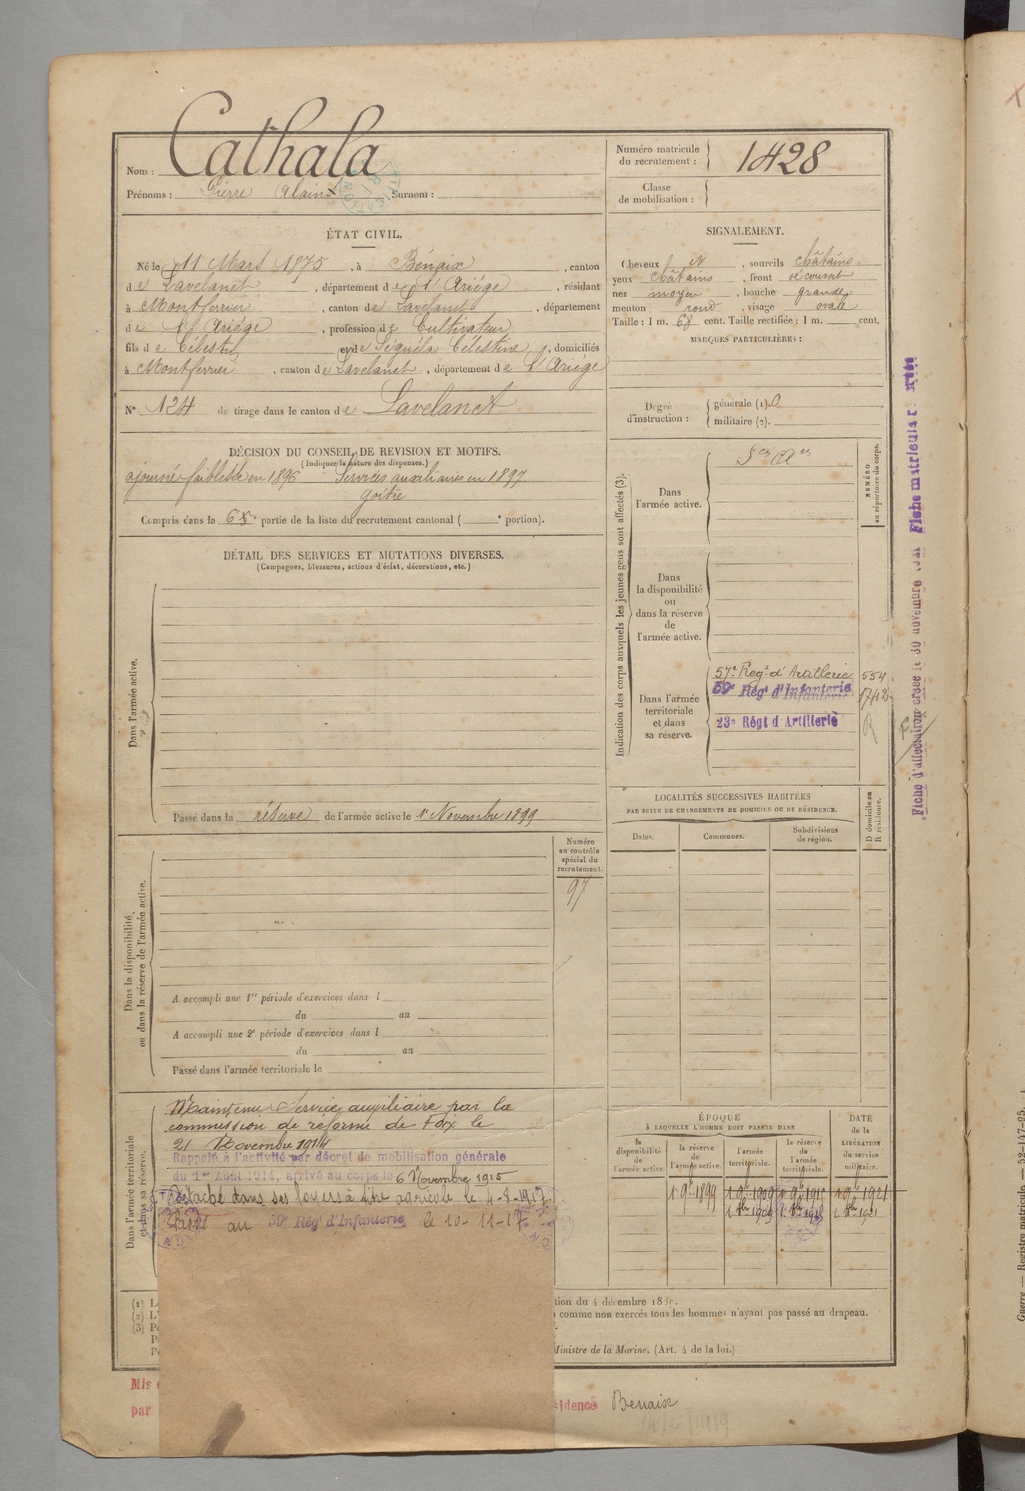 Nom : Cathala
Prénoms : Pierre Alain Surnom :
Numéro matricule du recrutement : 1428
Classe de mobilisation :
ÉTAT CIVIL.
Né le 11 Mars 1875, à Bénaix, canton
de Lavelanet, département de l'Ariége, résidant
à Montferrier, canton de Lavelanet, département
de l'Ariége, profession de Cultivateur
fils de Célestin et de Séguéla Célestine, domiciliés
à Montferrier, canton de Lavelanet, département de l'Ariége
N° 124 de tirage dans le canton de Lavelanet
SIGNALEMENT.
Cheveux et, sourcils châtains
yeux châtains, front découvert
nez moyen, bouche grande
menton rond, visage ovale
Taille : 1 m. 68 cent. Taille rectifiée : 1 m. cent.
MARQUES PARTICULIÈRES :
Degré d'instruction : générale (1). 0
militaire (2).
DÉCISION DU CONSEIL DE REVISION ET MOTIFS.
(Indiquer la nature des dispenses.)
ajourné faiblesse en 1896 Services auxiliaires en 1897
goitre
Compris dans la 6e partie de la liste du recrutement cantonal ( e portion).
DÉTAIL DES SERVICES ET MUTATIONS DIVERSES.
(Campagnes, blessures, actions d'éclat, décorations, etc.)
Dans l'armée active.
Passé dans la réserve de l'armée active le 1er Novembre 1899
Indication des corps auxquels les jeunes gens sont affectés (3).
NUMÉRO au répertoire du corps.
Dans l'armée active.
Sces Aes
Dans la disponibilité ou dans la réserve de l'armée active.
Dans l'armée territoriale et dans sa réserve.
57e Regt d'Artillerie 554
59e Régt d'Infanterie 1742
23e Régt d'Artillerie R
Fiche d'affectation créée le 30 novembre Fiche matricule
LOCALITÉS SUCCESSIVES HABITÉES
PAR SUITE DE CHANGEMENTS DE DOMICILE OU DE RÉSIDENCE.
Dates. Communes. Subdivisions de région.
D domicile ou R résidence.
Numéro au contrôle spécial du recrutement.
97
Dans la disponibilité, ou dans la réserve de l'armée active.
A accompli une 1re période d'exercices dans l
du au
A accompli une 2e période d'exercices dans l
du au
Passé dans l'armée territoriale le
Dans l'armée territoriale et dans sa réserve.
Maintenu Service auxiliaire par la
commission de réforme de Foix le
21 Novembre 1914
Rappelé à l'activité par décret de mobilisation générale
du 1er Août 1914, arrivé au corps le 6 Novembre 1915
Détaché dans ses foyers à titre agricole le 4-8-1917.
Passé au 59e Régt d'Infanterie le 10-11-17
ÉPOQUE
À LAQUELLE L'HOMME DOIT PASSER DANS
la disponibilité de l'armée active.
la réserve de l'armée active.
l'armée territoriale.
la réserve de l'armée territoriale.
DATE de la LIBÉRATION du service militaire.
1 9bre 1899
1 9bre 1909
1 9bre 1915
1 9bre 1921
tion du 4 décembre 1889.
comme non exercés tous les hommes n'ayant pas passé au drapeau.
Ministre de la Marine. (Art. 4 de la loi.)
(1)
(2)
(3)
Mis
par
sidence Benaix
Guerre — Registre matricule